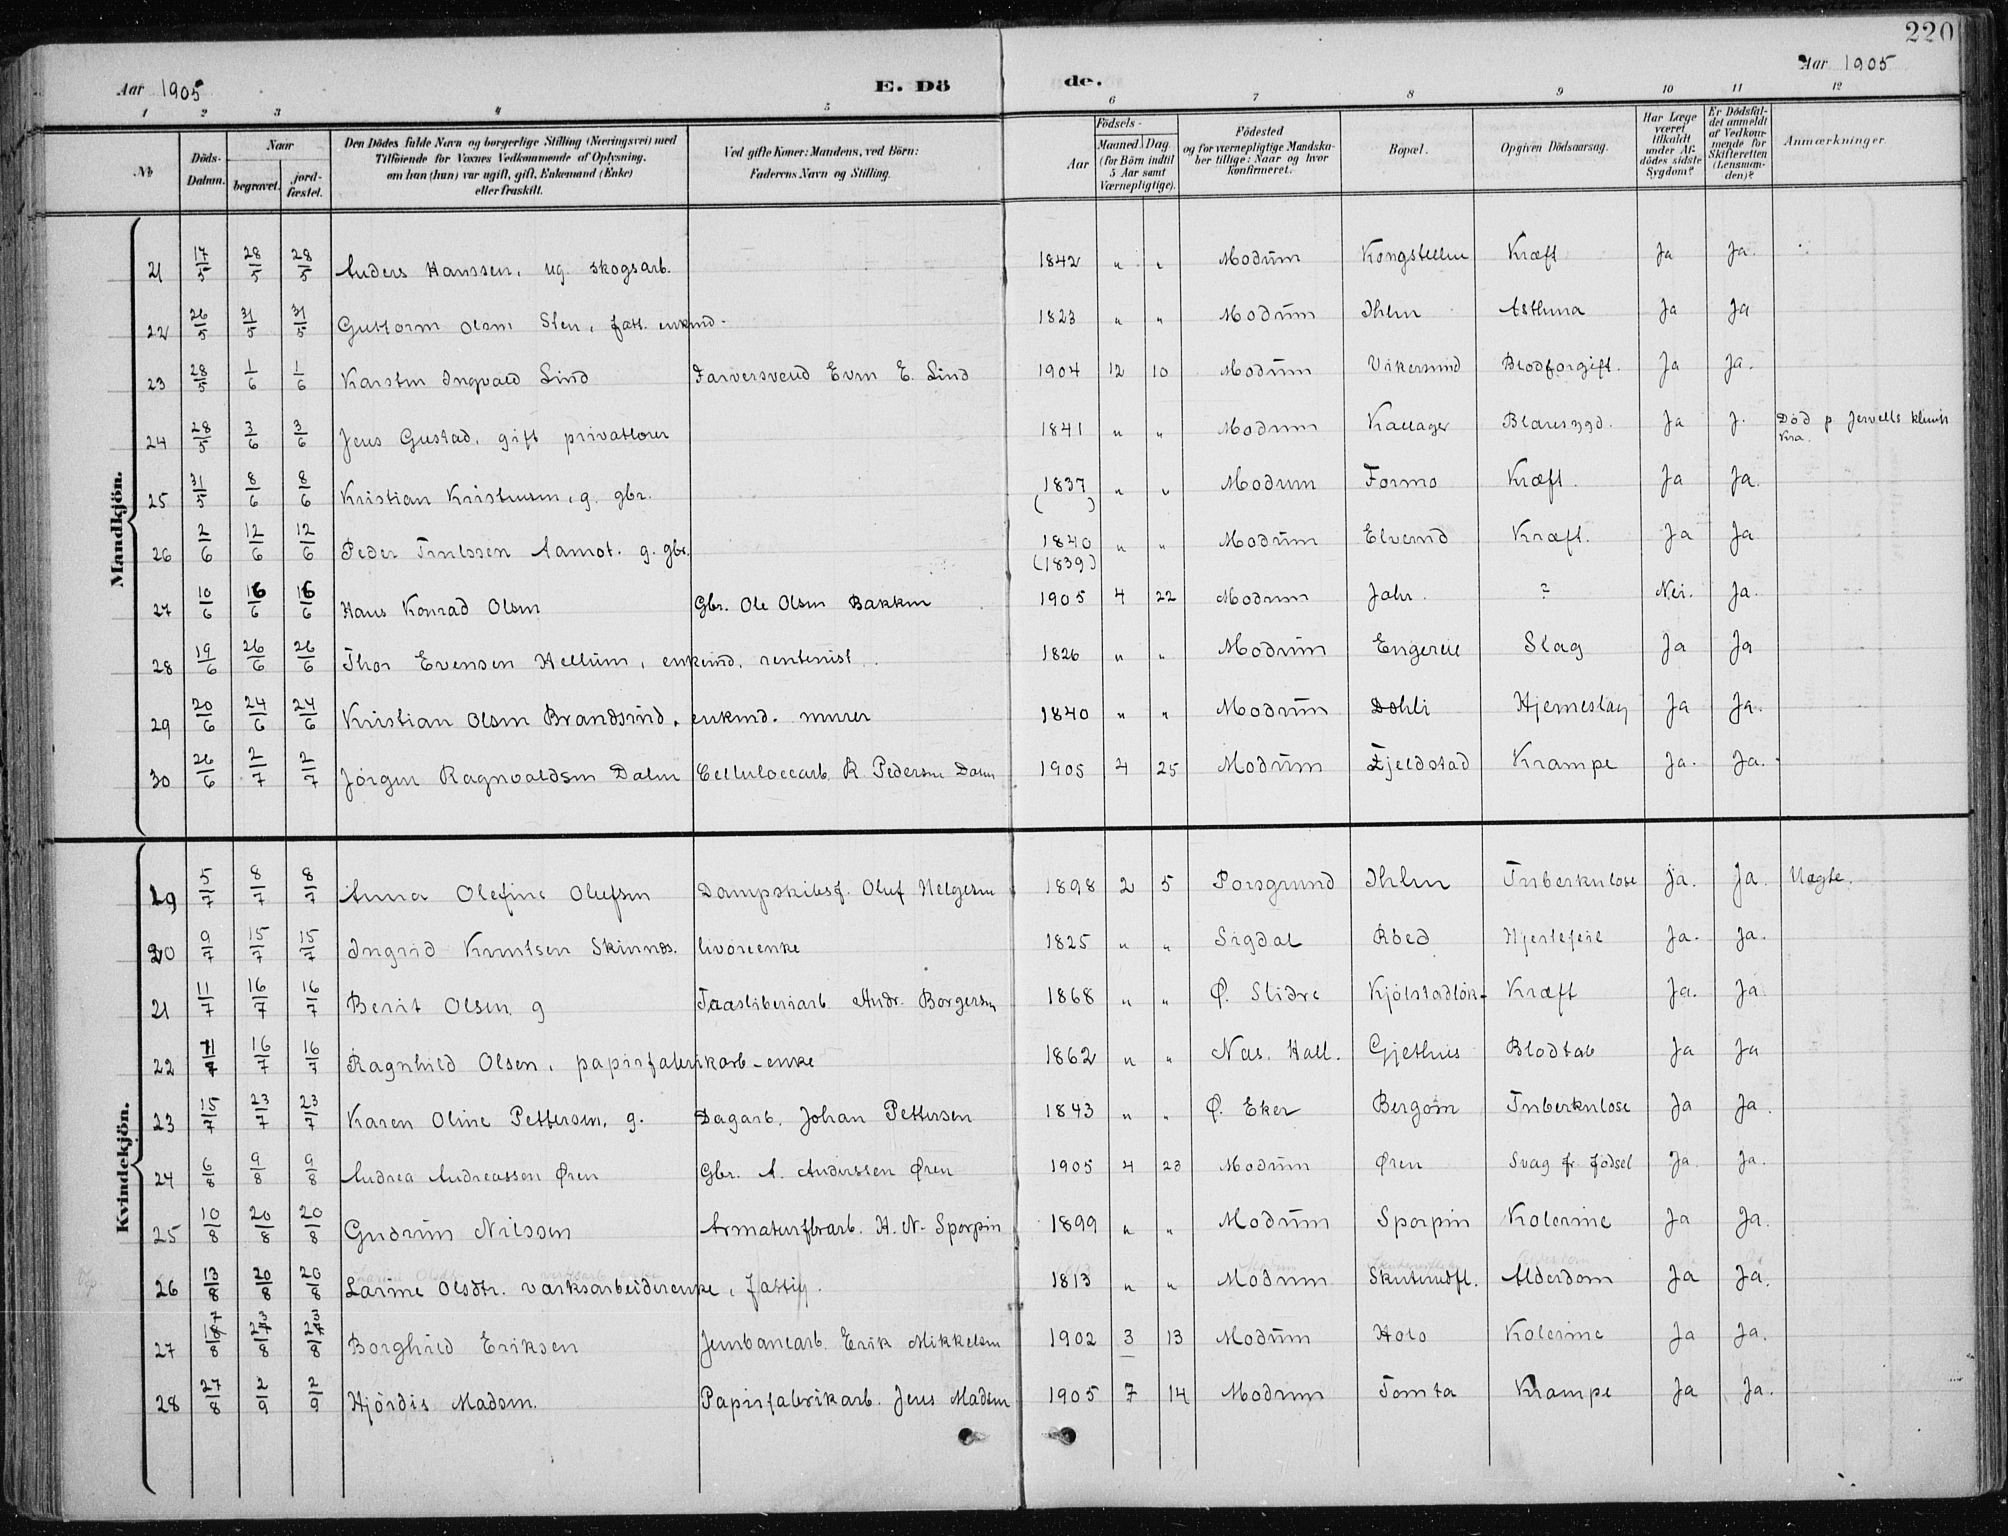 220
Aar 1905
E. Dö de.
Aar 1905
1 2 3 4 5 6 7 8 9 10 11 12
№
Döds-Datum.
Naar
begravet.
jord-fæstet.
Den Dödes fulde Navn og borgerlige Stilling (Næringsvei) med
Tilføiende for Voxnes Vedkommende af Oplysning,
om han (hun) var ugift, gift, Enkemand (Enke)
eller fraskilt.
Ved gifte Koner: Mandens, ved Börn:
Faderens Navn og Stilling.
Födsels-
Aar
Maaned Dag
(for Börn indtil
5 Aar samt
Værnepligtige).
Födested
og for værnepligtige Mandska-
ber tillige: Naar og hvor
konfirmeret.
Bopæl.
Opgiven Dödsaarsag.
Har Læge
været
tilkaldt
under Af-
dödes sidste
Sygdom?
Er Dödsfal-
det anmeldt
af Vedkom-
mende for
Skifteretten
(Lensman-
den)?
Anmærkninger
Mandkjön.
21 17/5 28/5 28/5 Anders Hanssen, ug. skogsarb. 1842 " " Modum Kongstellen Kræft Ja Ja.
22 26/5 31/5 31/5 Guttorm Olsen Sten, fatt. enkmd. 1823 " " Modum Ihlen Asthma Ja Ja
23 28/5 1/6 1/6 Karsten Ingvald Lind Farversvend Even E. Lind 1904 12 10 Modum Vikersund Blodforgift. Ja Ja.
24 28/5 3/6 3/6 Jens Gustad, gift privatlærer 1841 " " Modum Kallager Blæresygd. Ja J. Död p. Jervells klinik
Kra.
25 31/5 8/6 8/6 Kristian Kristensen, g. gbr. 1837 " " Modum Formo Kræft. Ja Ja.
( )
26 2/6 12/6 12/6 Peder Trulssen Aamot. g. gbr. 1840 " " Modum Elverud Kræft. Ja Ja
(1839)
27 10/6 16/6 16/6 Hans Konrad Olsen Gbr. Ole Olsen Bakken 1905 4 22 Modum Jahr. ? Nei. Ja.
28 19/6 26/6 26/6 Thor Evensen Hellum, enkmd. rentenist. 1826 " " Modum Engerie Slag Ja Ja
29 20/6 24/6 24/6 Kristian Olsen Brandsrud, enkmd. murer 1840 " " Modum Dohli Hjerneslag Ja Ja.
30 26/6 2/7 2/7 Jörgen Ragnvaldsen Dalen Cellulocearb. R. Pedersen Dalen 1905 4 25 Modum Fjeldstad Krampe Ja. Ja.
Kvindekjön.
19 5/7 8/7 8/7 Anna Olefine Olufsen Dampskibsf. Oluf Helgesen 1898 2 5 Porsgrund Ihlen Tuberkulose Ja. Ja. Uægte.
20 9/7 15/7 15/7 Ingrid Knutsen Skinnes. livöreenke 1825 " " Sigdal Röed Hjertefeil Ja. Ja.
21 11/7 16/7 16/7 Berit Olsen g Træsliberiarb. Andr. Borgersen 1868 " " Ø. Slidre Kjölstadlök. Kræft Ja. Ja
22 11/7 16/7 16/7 Ragnhild Olsen, papirfabrikarb-enke 1862 " " Nas. Hall. Gjethus Blodtab Ja Ja
23 15/7 23/7 23/7 Karen Oline Pettersen, g. Dagarb. Johan Pettersen 1843 " " Ø. Eker Bergom Tuberkulose Ja Ja.
24 6/8 9/8 9/8 Andrea Andreassen Øren Gbr. A. Anderssen Øren 1905 4 23 Modum Øren Svag fr. födsel Ja Ja.
25 10/8 20/8 20/8 Gudrun Nilssen Armaturfbrarb. H. N. Sporpin 1899 " " Modum Sporpin Kolerine Ja Ja.
26 13/8 20/8 20/8 Larine Olsdtr. værksarbeiderenke, fattig. 1813 " " Modum Skuterudfl. Alderdom Ja Ja.
27 17/8 23/8 23/8 Borghild Eriksen Jernbanearb. Erik Mikkelsen 1902 3 13 Modum Holo Kolerine Ja Ja.
28 27/8 2/9 2/9 Hjördis Madsen. Papirfabrikarb. Jens Madsen 1905 7 14 Modum Tomta Krampe Ja Ja.